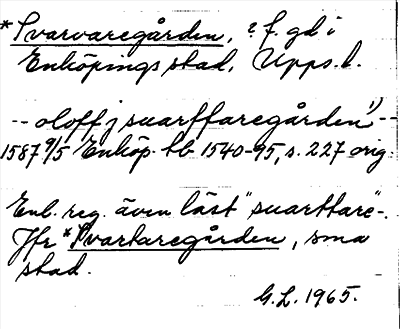 *Svarvaregården, ? f. gd i
Enköpings stad, Upps. l.
-- oloff j suarffaregården 1) --
1587 9/5 Enköp. tb 1540-95, s. 227 orig.
Enl. reg. även läst "suarttare"-.
Jfr *Svartaregården, sma
stad.
G.L. 1965.